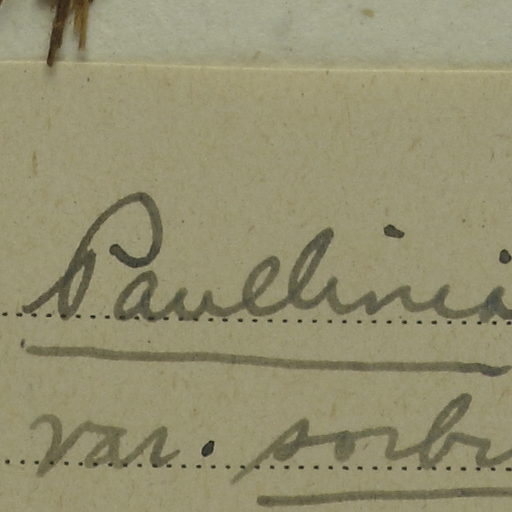 Paullinia
var. sorbi